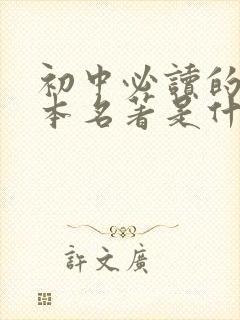 初中必讀的
本名著是什
許文廣